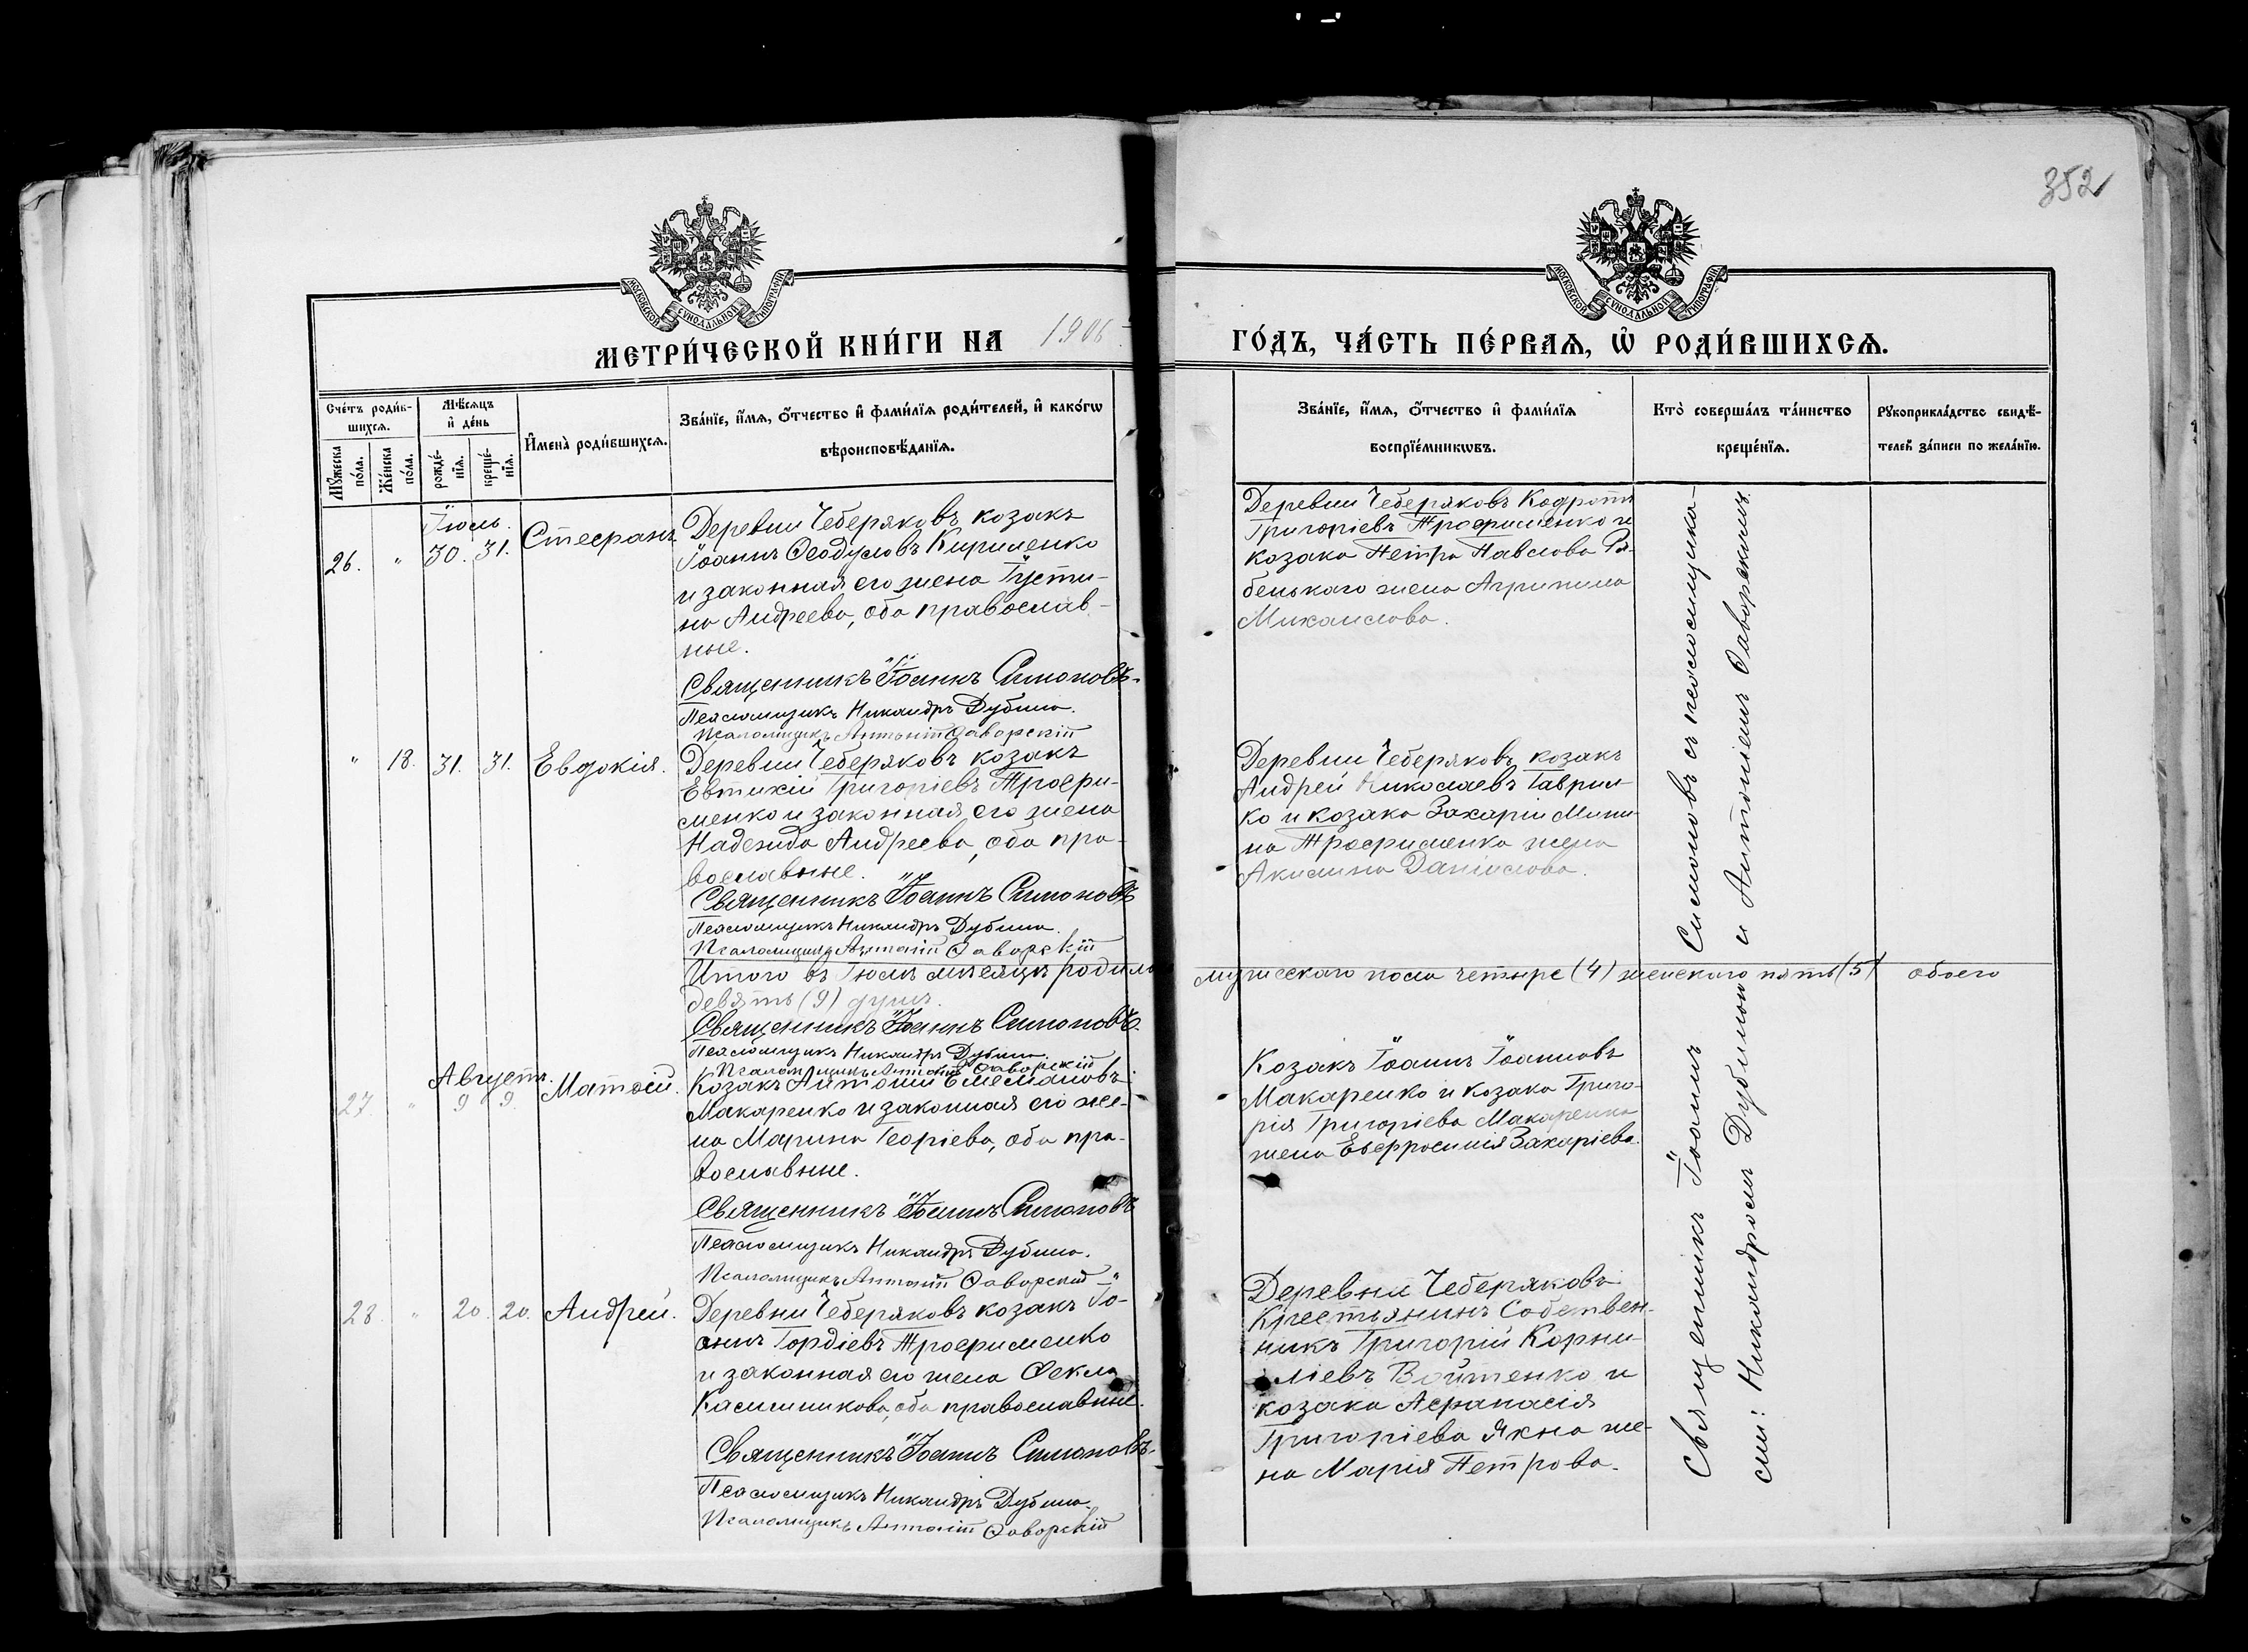 352
МОСКОВСКОЙ СѴНОДАЛЬНОЙ ТИПОГРАФІИ
МОСКОВСКОЙ СѴНОДАЛЬНОЙ ТИПОГРАФІИ
МЕТРИ́ЧЕСКОЙ КНИ́ГИ НА 1906 ГО́ДЪ, ЧА́СТЬ ПЕ́РВАѦ, Ѡ҆ РОДИ́ВШИХСѦ.
Сче́тъ роди́в-
шихсѧ.
Мꙋ́жеска
по́ла.
Же́нска
по́ла.
Мѣ́сѧцъ
и҆ де́нь
рожде́-
нїѧ.
креще́-
нїѧ.
И҆мена̀ роди́вшихсѧ.
Зва́нїе, и҆́мѧ, ѻ҆́тчество и҆ фами́лїѧ роди́телей, и҆ како́гѡ
вѣроисповѣ́данїѧ.
Зва́нїе, и҆́мѧ, ѻ҆́тчество и҆ фами́лїѧ
воспрїе́мникѡвъ.
Кто̀ соверша́лъ та́инство
креще́нїѧ.
Рꙋкоприкла́дство свидѣ́-
телей за́писи по жела́нїю.
Іюль.
26. " 30. 31. Стефанъ
Деревни Чеберяковъ козакъ
Іоаннъ Ѳеодуловъ Кириленко
и законная его жена Іусти-
на Андреева, оба православ-
ные.
Священникъ Іоаннъ Симоновъ.
Псаломщикъ Никандръ Дубина.
Псаломщикъ Антоній Ѳаворскій
Деревни Чеберяковъ Кодротъ
Григоріевъ Трофименко и
козака Петра Павлова Ря-
бенькаго жена Агрипина
Михаилова.
" 18. 31. 31. Евдокія.
Деревни Чеберяковъ козакъ
Евтихій Григоріевъ Трофи-
менко и законная его жена
Надежда Андреева, оба пра-
вославные.
Священникъ Іоаннъ Симоновъ
Псаломщикъ Никандръ Дубина.
Псаломщикъ Антоній Ѳаворскій
Деревни Чеберяковъ козакъ
Андрей Николаевъ Гаврил-
ко и козака Захарія Мини-
на Трофименка жена
Акилина Даніилова.
Итого въ Іюлѣ мѣсяцѣ родило мужескаго пола четыре (4) женскаго пять (5) обоего
девять (9) душъ.
Священникъ Іоаннъ Симоновъ.
Псаломщикъ Никандръ Дубина.
Псаломщикъ Антоній Ѳаворскій
Августъ.
27 " 9 9. Матѳій.
Козакъ Антоній Емеліановъ
Макаренко и законная его же-
на Марина Георгіева, оба пра-
вославные.
Священникъ Іоаннъ Симоновъ
Псаломщикъ Никандръ Дубина.
Псаломщикъ Антоній Ѳаворскій
Козакъ Іоаннъ Іоанновъ
Макаренко и козака Григо-
рія Григоріева Макаренка
жена Евфросинія Захаріева.
28. " 20. 20. Андрей.
Деревни Чеберяковъ козакъ Іо-
аннъ Гордіевъ Трофименко
и законная его жена Ѳекла
Калинникова, оба православные.
Священникъ Іоаннъ Симоновъ.
Псаломщикъ Никандръ Дубина.
Псаломщикъ Антоній Ѳаворскій
Деревни Чеберяковъ
Крестьянинъ Собствен-
никъ Григорій Корни-
ліевъ Войтенко и
козака Аѳанасія
Григоріева Якна же-
на Марія Петрова.
Священникъ Іоаннъ Симоновъ съ псаломщика-
ми: Никандромъ Дубиною и Антоніемъ Ѳаворскимъ.